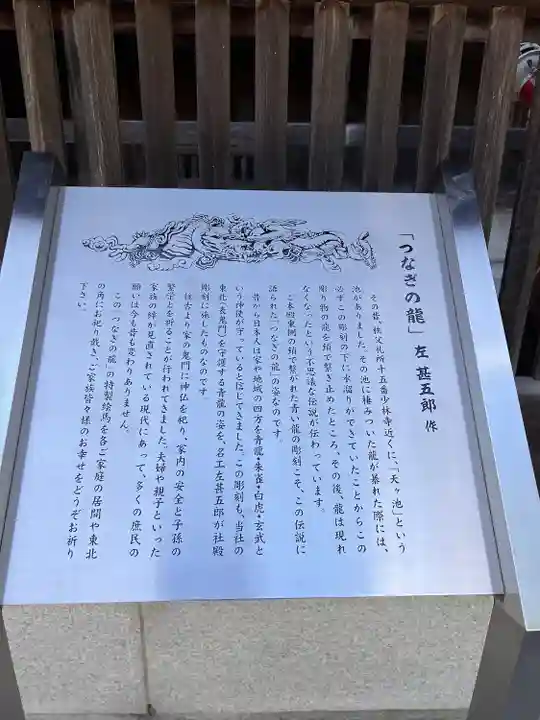 「つなぎの龍」 左 甚五郎 作
その昔、秩父札所十五番少林寺近くに、「天ヶ池」という
池がありました。その池に棲みついた龍が暴れた際には、
必ずこの彫刻の下に水溜りができていたことからこの
彫り物の龍を鎖で繋ぎ止めたところ、その後、龍は現れ
なくなったという不思議な伝説が伝わっています。
ご本殿東側の鎖で繋がれた青い龍の彫刻こそ、この伝説に
語られた「つなぎの龍」の姿なのです。
昔から日本人は家や地域の四方を青龍・朱雀・白虎・玄武と
いう神使が守っていると信じてきました。この彫刻も、当社の
東北(表鬼門)を守護する青龍の姿を、名工左甚五郎が社殿
彫刻に施したものなのです
往古より家の鬼門に神仏を祀り、家内の安全と子孫の
繁栄とを祈ることが行われてきました。夫婦や親子といった
家族の絆が見直されている現代にあって、多くの庶民の
願いは今も昔も変わりありません。
この「つなぎの龍」の特製絵馬を各ご家庭の居間や東北
の角にお祀り戴き、ご家族皆々様のお幸せをどうぞお祈り
下さい。